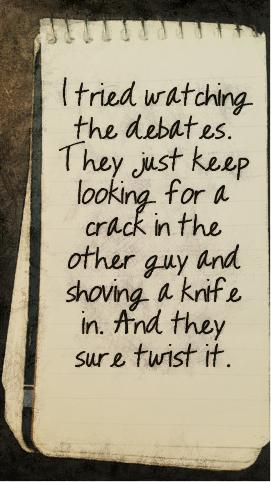 I tried watching
the debates.
They just keep
looking for a
crack in the
other guy and
shoving a knife
in. And they
sure twist it.